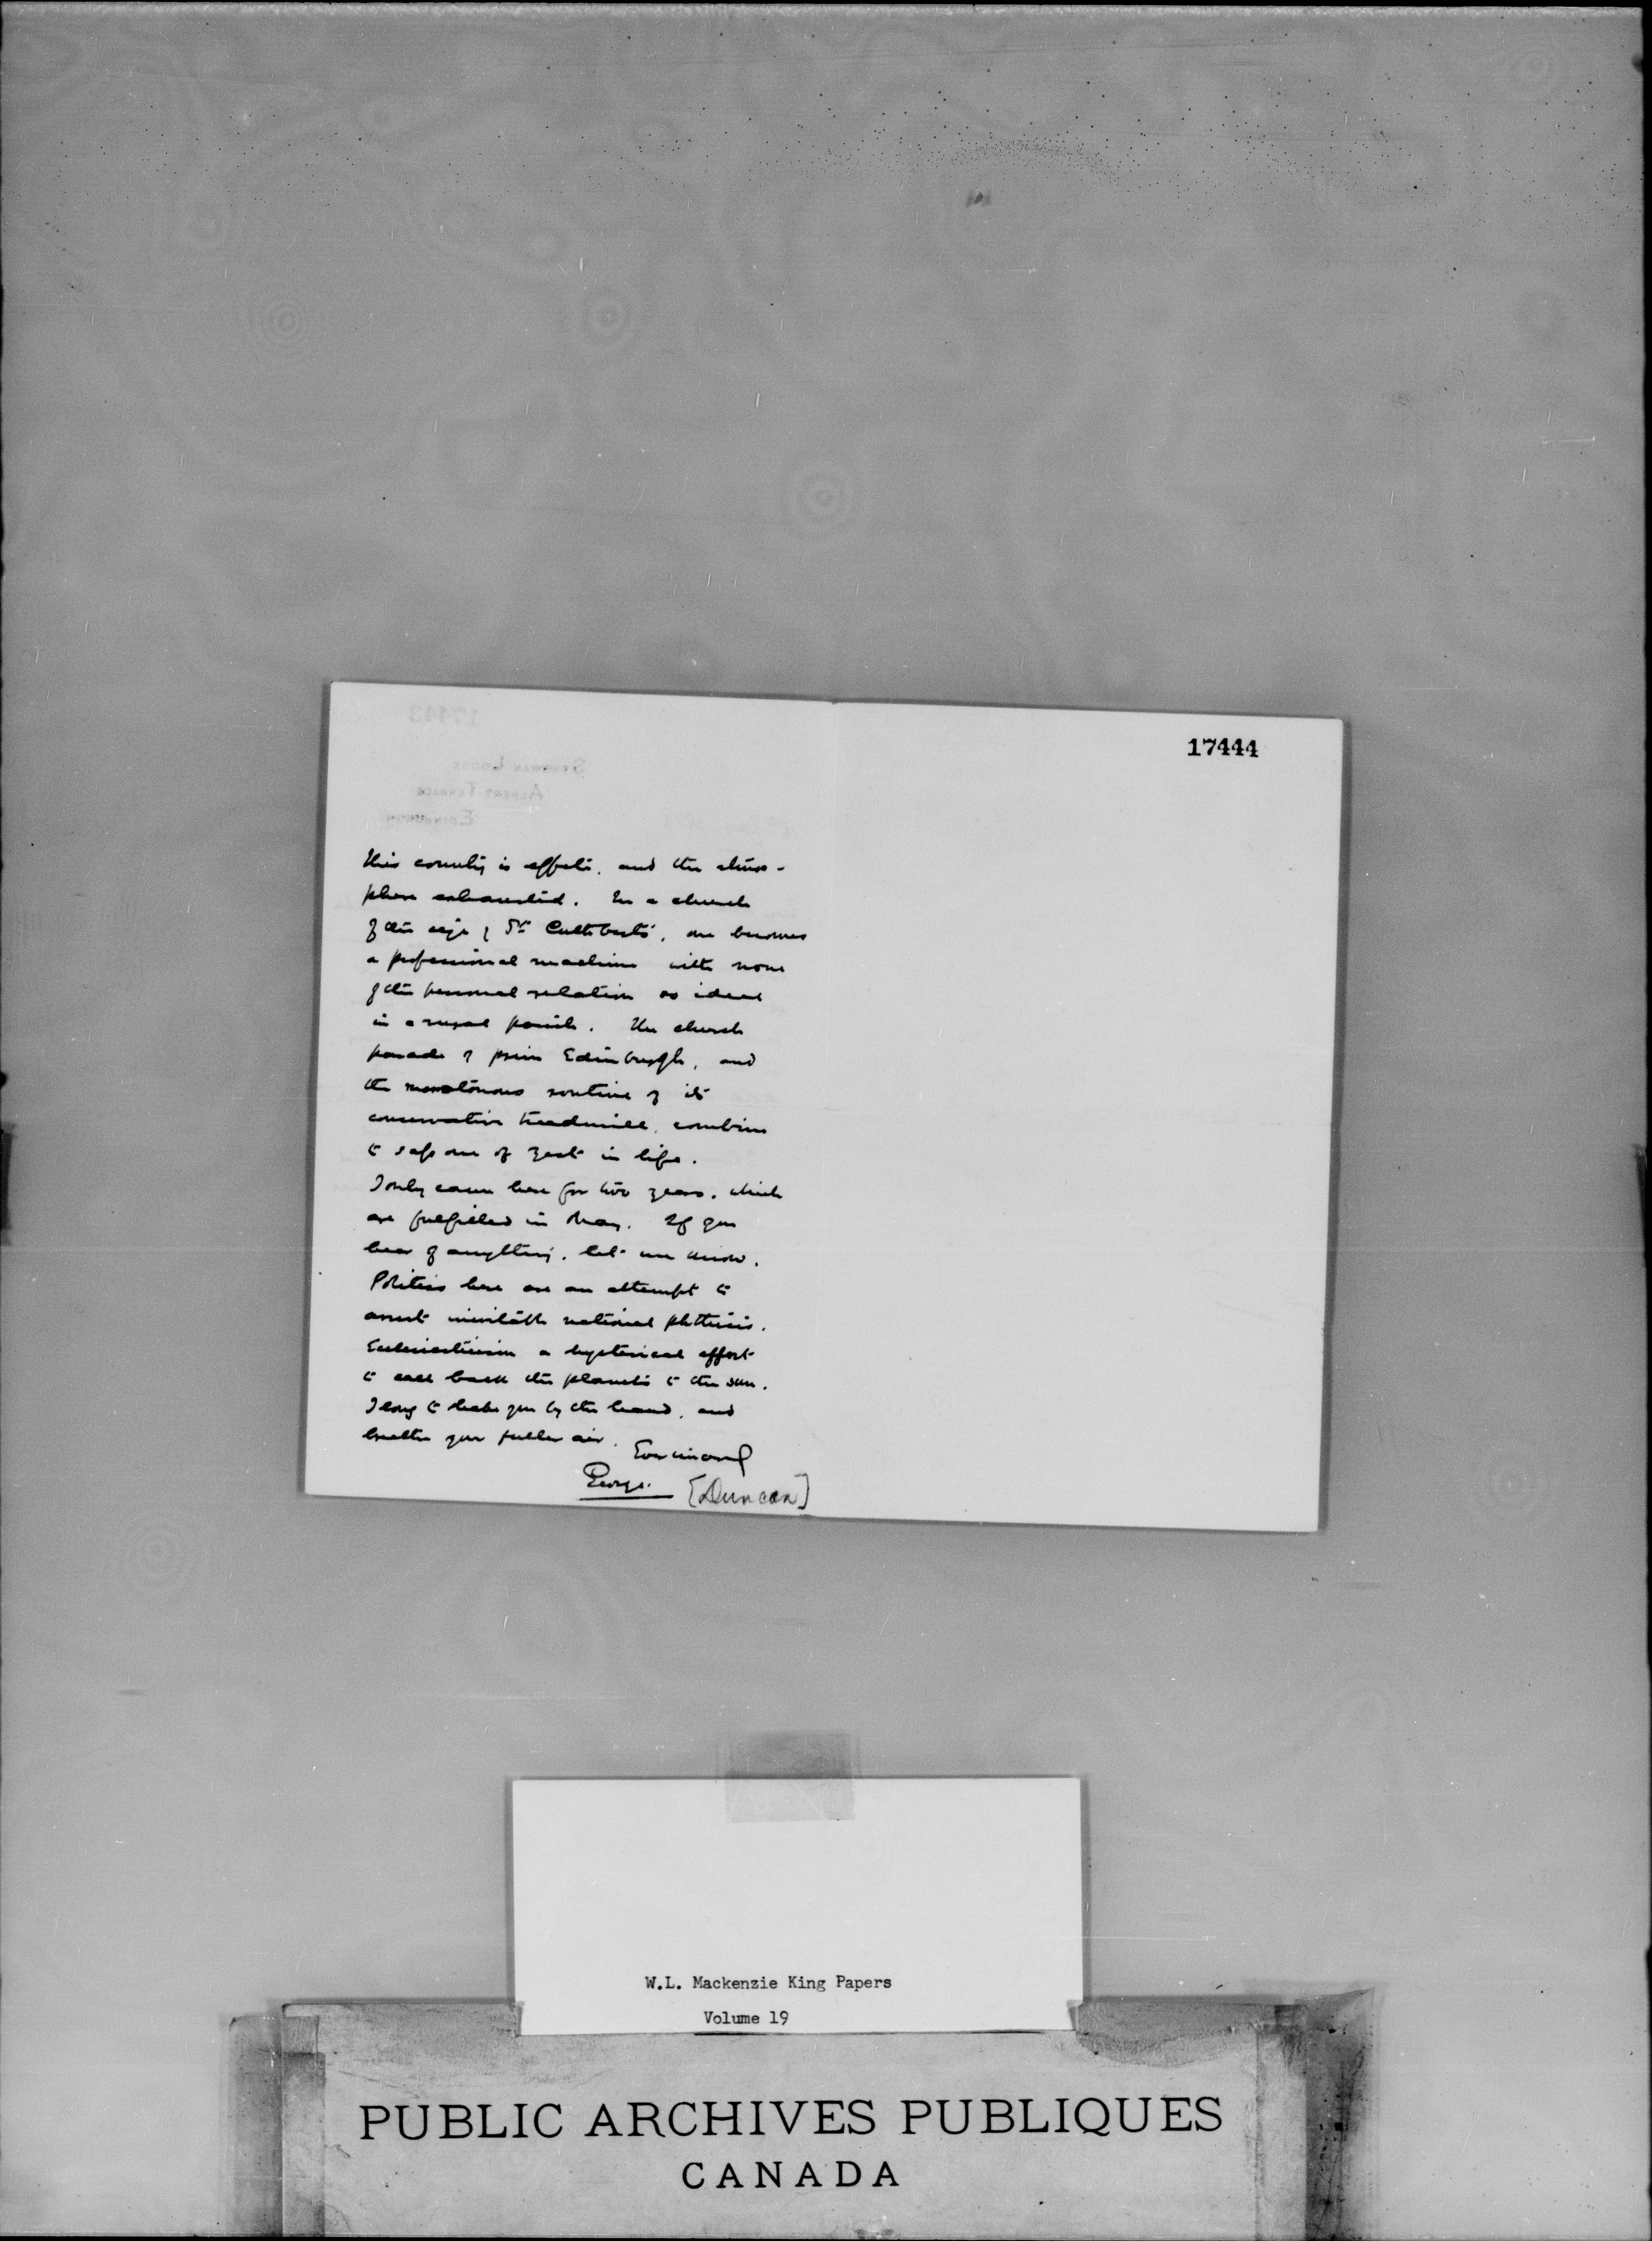 17444
this country is effete, and the atmos-
phere exhausted. In a church
of the size of St Cuthbert's, one becomes
a professional machine with none
of the personal relation so ideal
in a rural parish. The church
parade of prim Edinburgh, and
the monotonous routine of its
conservative treadmill, combine
to sap one of zest in life.
I only came here for two years, which
are fulfilled in May. If you
hear of anything, let me know.
Politics here are an attempt to
arrest inevitable national phthisis.
Ecclesiasticism a hysterical effort
to call back the planets to the sun.
I long to take you by the hand, and
breathe your fuller air.
George. [Duncan]
W.L. Mackenzie King Papers
Volume 19
PUBLIC ARCHIVES PUBLIQUES
CANADA